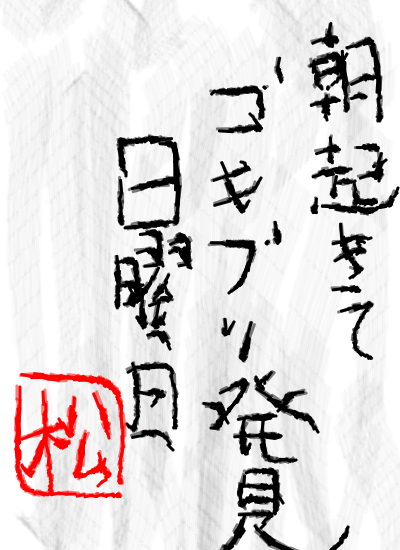 朝起きて
ゴキブリ発見
日曜日
松